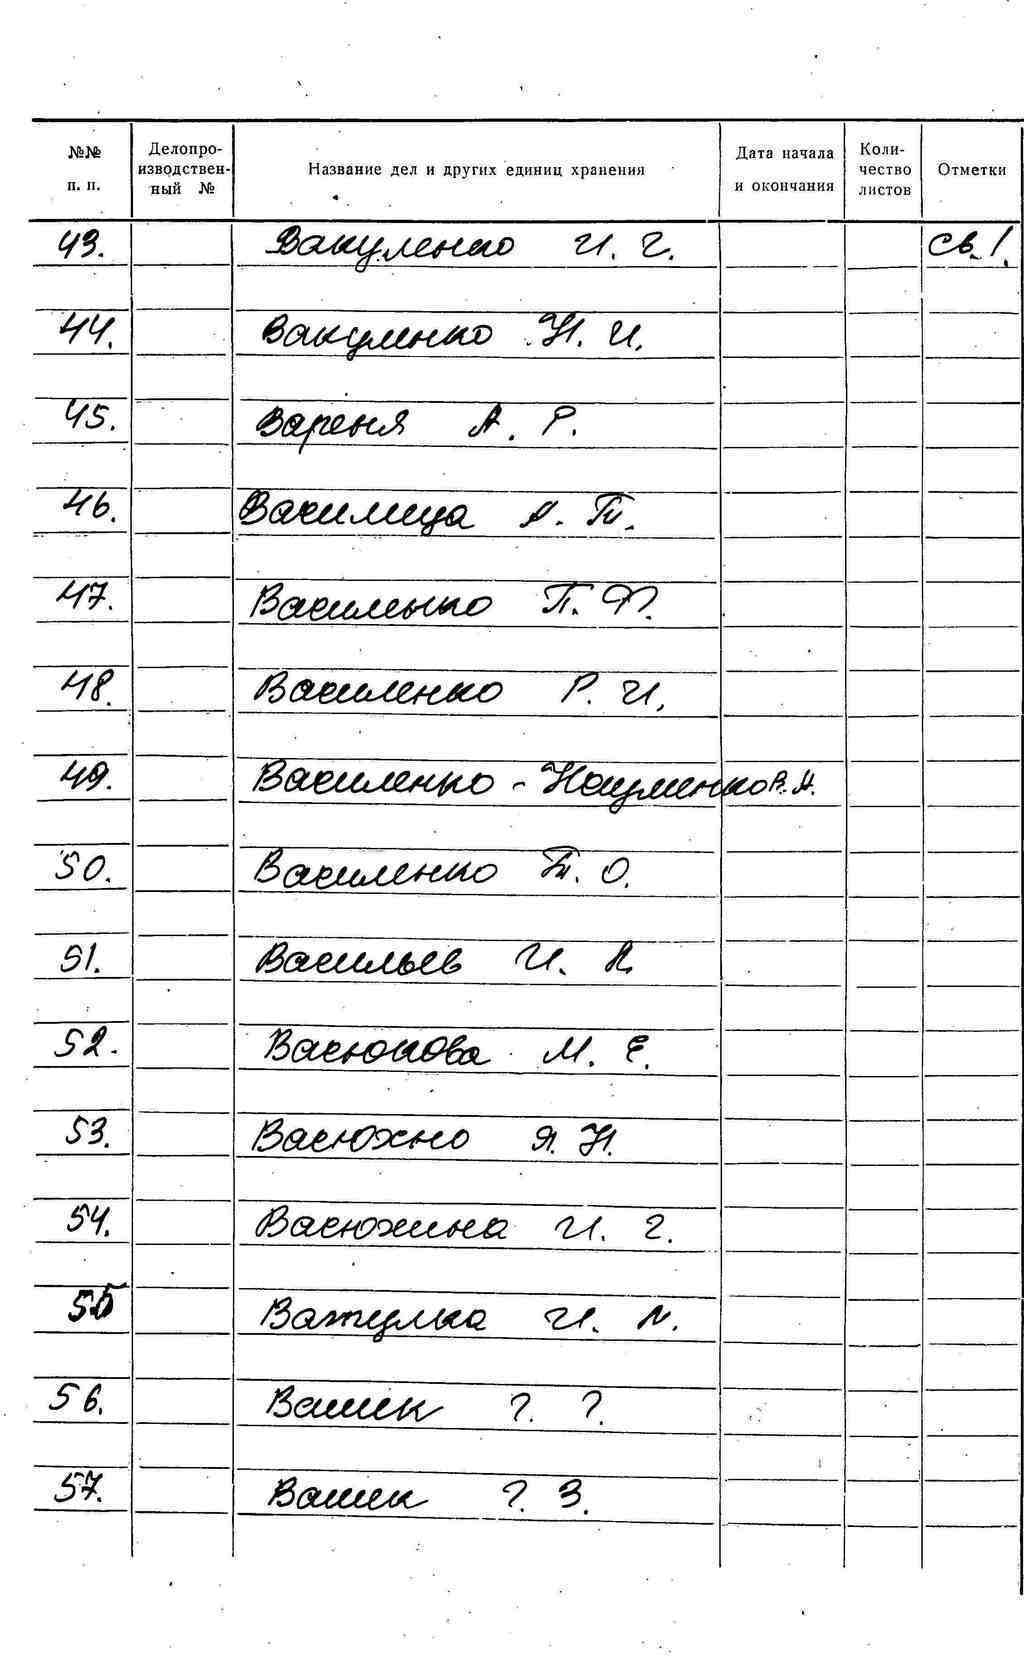 №№ п. п. Делопро- изводствен- ный № Название дел и других единиц хранения Дата начала и окончания Коли- чество листов Отметки
43. Вакуленко И. Г. Св. 1.
44. Вакуленко Н. И.
45. Вареня А. Р.
46. Василица А. Т.
47. Василенко П. Ф.
48. Василенко Р. И.
49. Василенко - Науменко В. А.
50. Василенко Т. О.
51. Васильев И. А.
52. Васюкова М. Е.
53. Васюхно Я. Н.
54. Васюхина И. Г.
55 Ватулка И.
56. Вашек Г. Г.
57. Вашек Г. З.